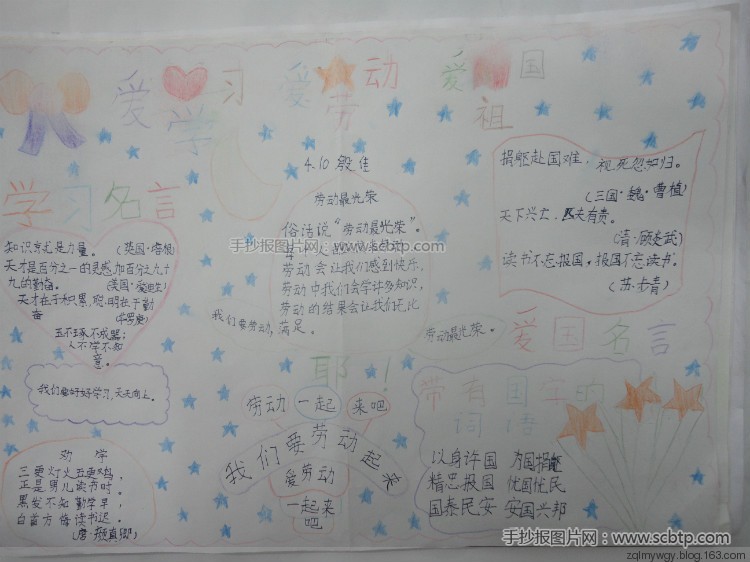 爱学习 爱劳动 爱祖国
学习名言
知识就是力量。 (英国·培根)
天才是百分之一的灵感加百分之九十
九的勤奋。 (美国·爱迪生)
天才在于积累,聪明在于勤
奋 (华罗庚)
玉不琢不成器;
人不学不知
意。
我们要好好学习,天天向上。
劝学
三更灯火五更鸡,
正是男儿读书时。
黑发不知勤学早,
白首方悔读书迟。
(唐·颜真卿)
4.10
劳动最光荣
俗话说“劳动最光荣”。
手抄报图片网·www.scbtp.com
劳动会让我们感到快乐,
劳动中我们会学许多知识,
劳动的结果会让我们无比
满足。
我们要劳动,
劳动最光荣。
耶!
劳动 一起 来吧
我们要劳动起来
爱劳动
一起来
吧
捐躯赴国难,视死忽如归。
(三国·魏·曹植)
天下兴亡,匹夫有责。
(清·顾炎武)
读书不忘报国,报国不忘读书。
爱国名言
带有国字的
词语
以身许国 为国捐躯
精忠报国 忧国忧民
国泰民安 安国兴邦
手抄报图片网·www.scbtp.com
zqlmywgy.blog.163.com